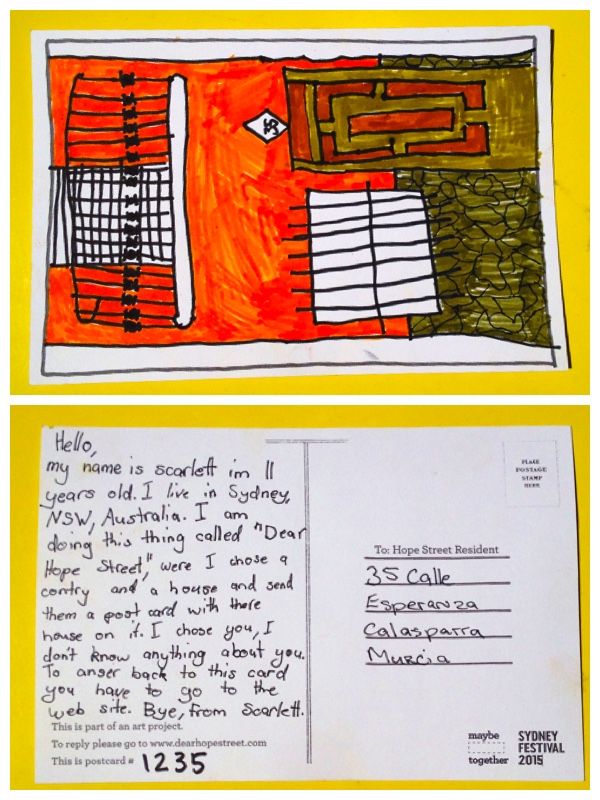 35
Hello,
my name is scarlett im 11
years old. I live in Sydney,
NSW, Australia. I am
doing this thing called "Dear
Hope Street," were I chose a
contry and a house and send
them a post card with there
house on it. I chose you, I
don't know anything about you.
To anser back to this card
you have to go to the
web site. Bye, from Scarlett.
This is part of an art project.
To reply please go to www.dearhopestreet.com
This is postcard # 1235
PLACE
POSTAGE
STAMP
HERE
To: Hope Street Resident
35 Calle
Esperanza
Calasparra
Murcia
maybe
together
SYDNEY
FESTIVAL
2015